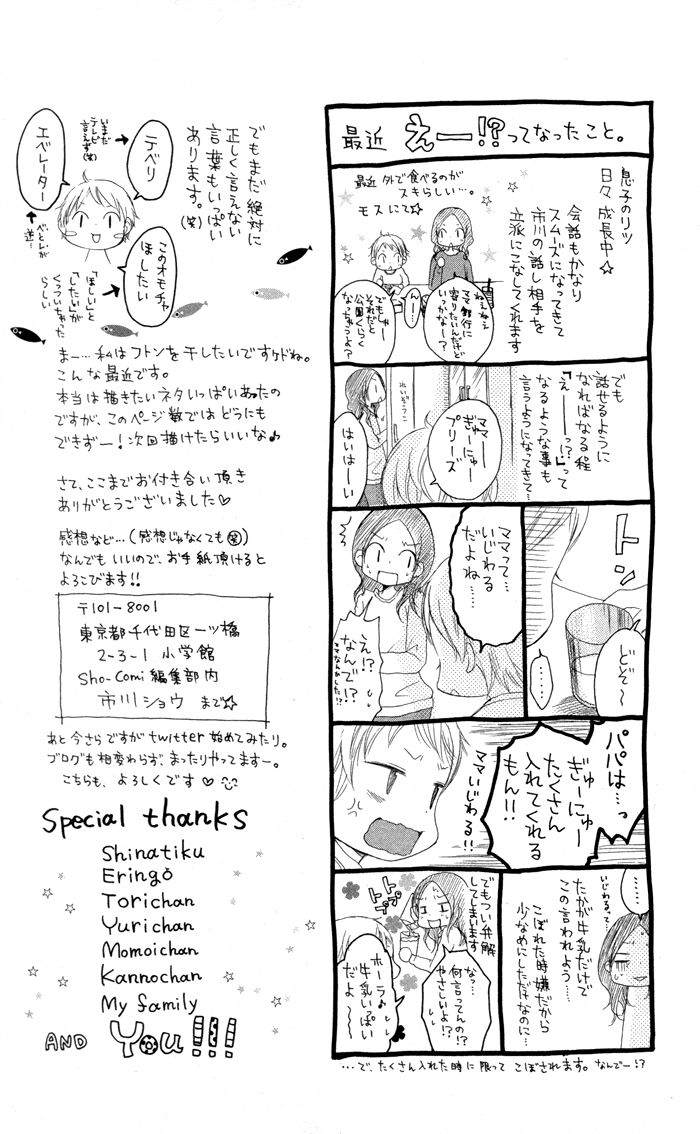 最近 えー!?ってなったこと。
息子のリツ
日々 成長中☆
会話もかなり
スムーズになってきて
市川の話し相手を
立派にこなしてくれます
最近 外で食べるのが
スキらしい…。
モスにて☆
ねぇねぇ
ママ銀行に
寄りたいんだけど
いっかなー？
んー…
でもしゃー
それだと
公園くらく
なっちゃうよ？
でも
話せるように
なればなる程
「えーーっ!?」って
なるような事も
言うようになってきて…
れいぞうこ
ママー
ぎゅーにゅー
プリーズ
はいはーい
トン
どぞ〜
……
ママって…
いじわる
だよね……
え!?
なんで!?
ママなんかした!?
パパは…っ
ぎゅーにゅー
たくさん
入れてくれる
もん!!
ママいじわる!!
……
いじわるって…
たかが牛乳だけで
この言われよう…
こぼれた時嫌だから
少なめにしただけなのに…
でもつい弁解
してしまいます
トプトプ
なっ…
何言ってんの!?
やさしいよ!?
ホーラ♪
牛乳いっぱい
だよ〜
…で、たくさん入れた時に限って こぼされます。なんでー!?
でもまだ絶対に
正しく言えない
言葉もいっぱい
あります。(笑)
テベリ
いまだ
テレビと
言えず(笑)
エベレーター
べとれが
逆!
このオモチャ
ほしたい
「ほしい」と
「したい」が
くっついちゃった
らしい
まー…私はフトンを干したいですケドね。
こんな最近です。
本当は描きたいネタいっぱいあったの
ですが、このページ数ではどうにも
できずー！次回描けたらいいな♪
さて、ここまでお付き合い頂き
ありがとうございました♡
感想など…(感想じゃなくても㊗)
なんでもいいので、お手紙頂けると
よろこびます!!
〒101-8001
東京都千代田区一ツ橋
2-3-1 小学館
Sho-Comi 編集部内
市川ショウ まで☆
あと今さらですがtwitter始めてみたり。
ブログも相変わらず、まったりやってますー。
こちらも、よろしくです♡
Special thanks
Shinatiku
Eringo
Torichan
Yurichan
Momoichan
Kannochan
My family
AND You!!!